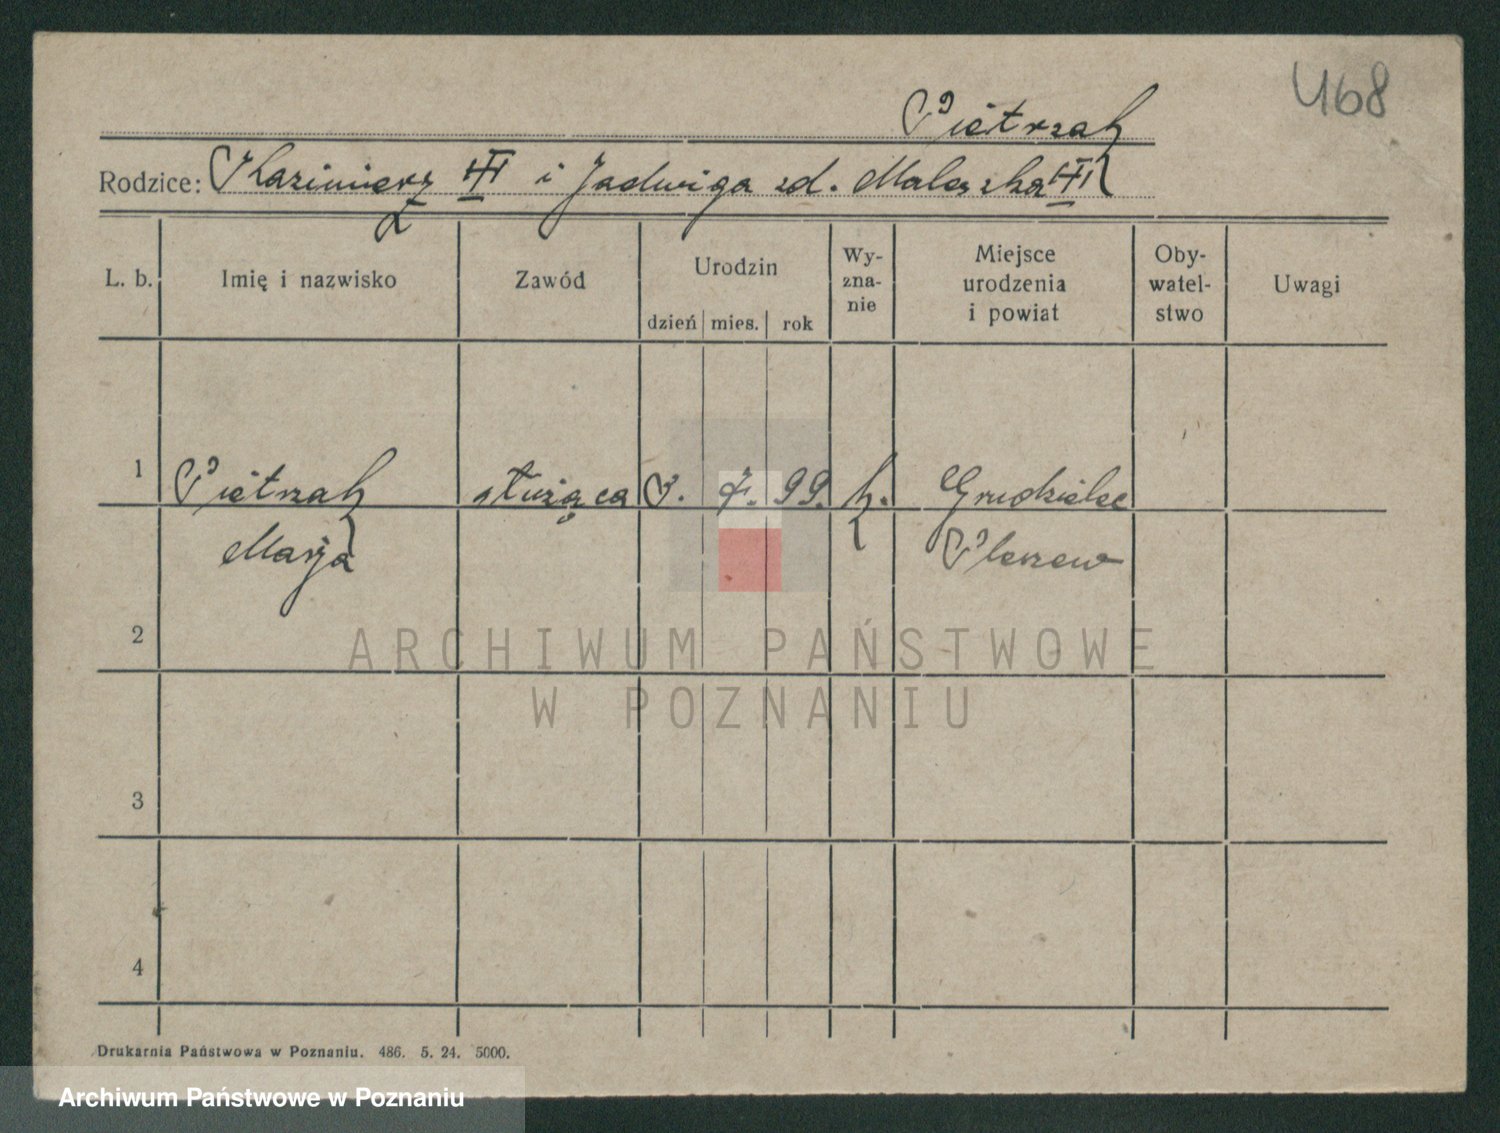 468
Pietrzak
Rodzice: Kazimierz i Jadwiga zd. Maleszka
L. b. Imię i nazwisko Zawód Urodzin dzień mies. rok Wy-zna-nie Miejsce urodzenia i powiat Oby-watel-stwo Uwagi
1 Pietrzak służąca 3. 7. 99. k. Grudzielec
Marja Pleszew
2
ARCHIWUM PAŃSTWOWE
W POZNANIU
3
4
Drukarnia Państwowa w Poznaniu. 486. 5. 24. 5000.
Archiwum Państwowe w Poznaniu